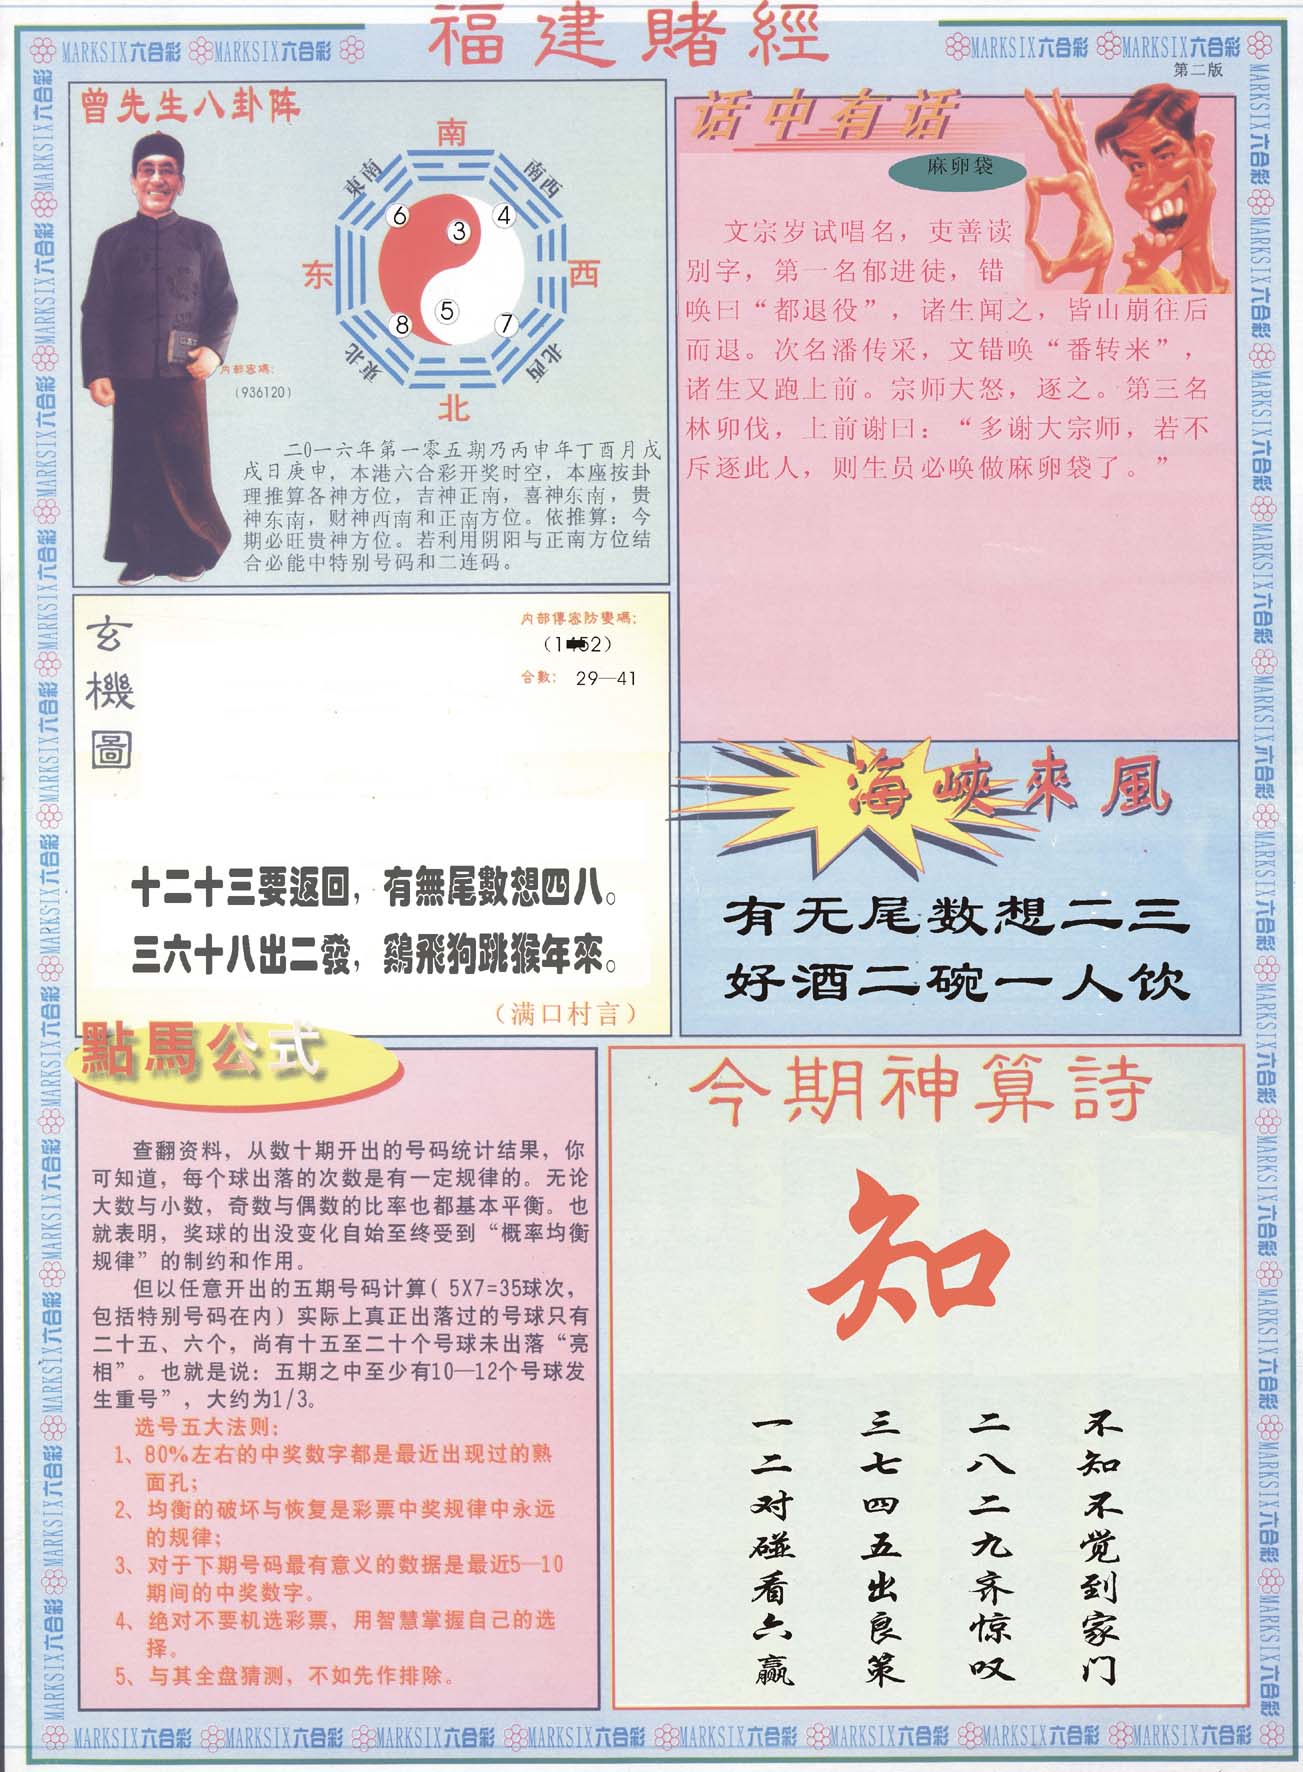 福建賭經
MARKSIX六合彩 MARKSIX六合彩
MARKSIX六合彩 MARKSIX六合彩
第二版
曾先生八卦阵
南
東南
南西
6
3
4
东
西
5
8
7
東北
北西
北
内部密碼:
(936120)
二〇一六年第一零五期乃丙申年丁酉月戊
戌日庚申，本港六合彩开奖时空，本座按卦
理推算各神方位，吉神正南，喜神东南，贵
神东南，财神西南和正南方位。依推算：今
期必旺贵神方位。若利用阴阳与正南方位结
合必能中特别号码和二连码。
话中有话
麻卵袋
文宗岁试唱名，吏善读
别字，第一名郁进徒，错
唤曰“都退役”，诸生闻之，皆山崩往后
而退。次名潘传采，文错唤“番转来”，
诸生又跑上前。宗师大怒，逐之。第三名
林卯伐，上前谢曰：“多谢大宗师，若不
斥逐此人，则生员必唤做麻卵袋了。”
玄機圖
内部傳密防變碼:
(1 52)
合數: 29—41
十二十三要返回，有無尾數想四八。
三六十八出二發，鷄飛狗跳猴年來。
（满口村言）
海峽來風
有无尾数想二三
好酒二碗一人饮
點馬公式
查翻资料，从数十期开出的号码统计结果，你
可知道，每个球出落的次数是有一定规律的。无论
大数与小数，奇数与偶数的比率也都基本平衡。也
就表明，奖球的出没变化自始至终受到“概率均衡
规律”的制约和作用。
但以任意开出的五期号码计算(5X7=35球次，
包括特别号码在内)实际上真正出落过的号球只有
二十五、六个，尚有十五至二十个号球未出落“亮
相”。也就是说：五期之中至少有10—12个号球发
生重号”，大约为1/3。
选号五大法则：
1、80%左右的中奖数字都是最近出现过的熟
面孔；
2、均衡的破坏与恢复是彩票中奖规律中永远
的规律；
3、对于下期号码最有意义的数据是最近5—10
期间的中奖数字。
4、绝对不要机选彩票，用智慧掌握自己的选
择。
5、与其全盘猜测，不如先作排除。
今期神算詩
知
不知不觉到家门
二八二九齐惊叹
三七四五出良策
一二对碰看六赢
MARKSIX六合彩 MARKSIX六合彩 MARKSIX六合彩 MARKSIX六合彩 MARKSIX六合彩 MARKSIX六合彩 MARKSIX六合彩 MARKSIX六合彩